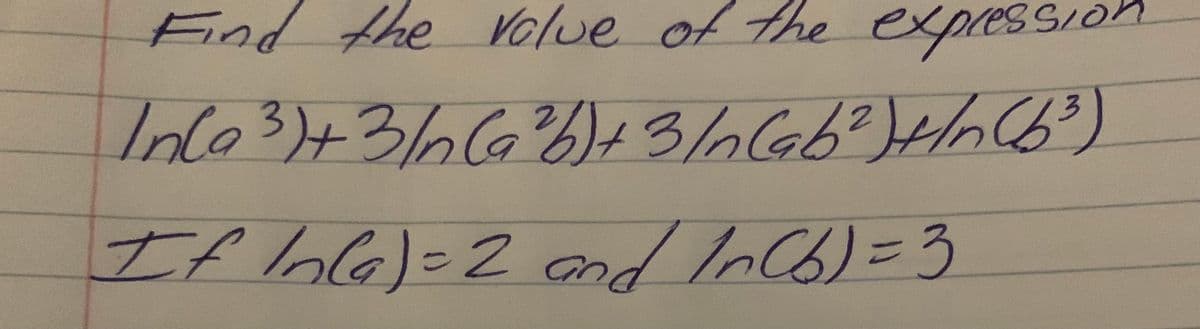 Find the value of the expression
ln(a³)+3ln(a²b)+3ln(ab²)+ln(b³)
If ln(a)=2 and ln(b)=3